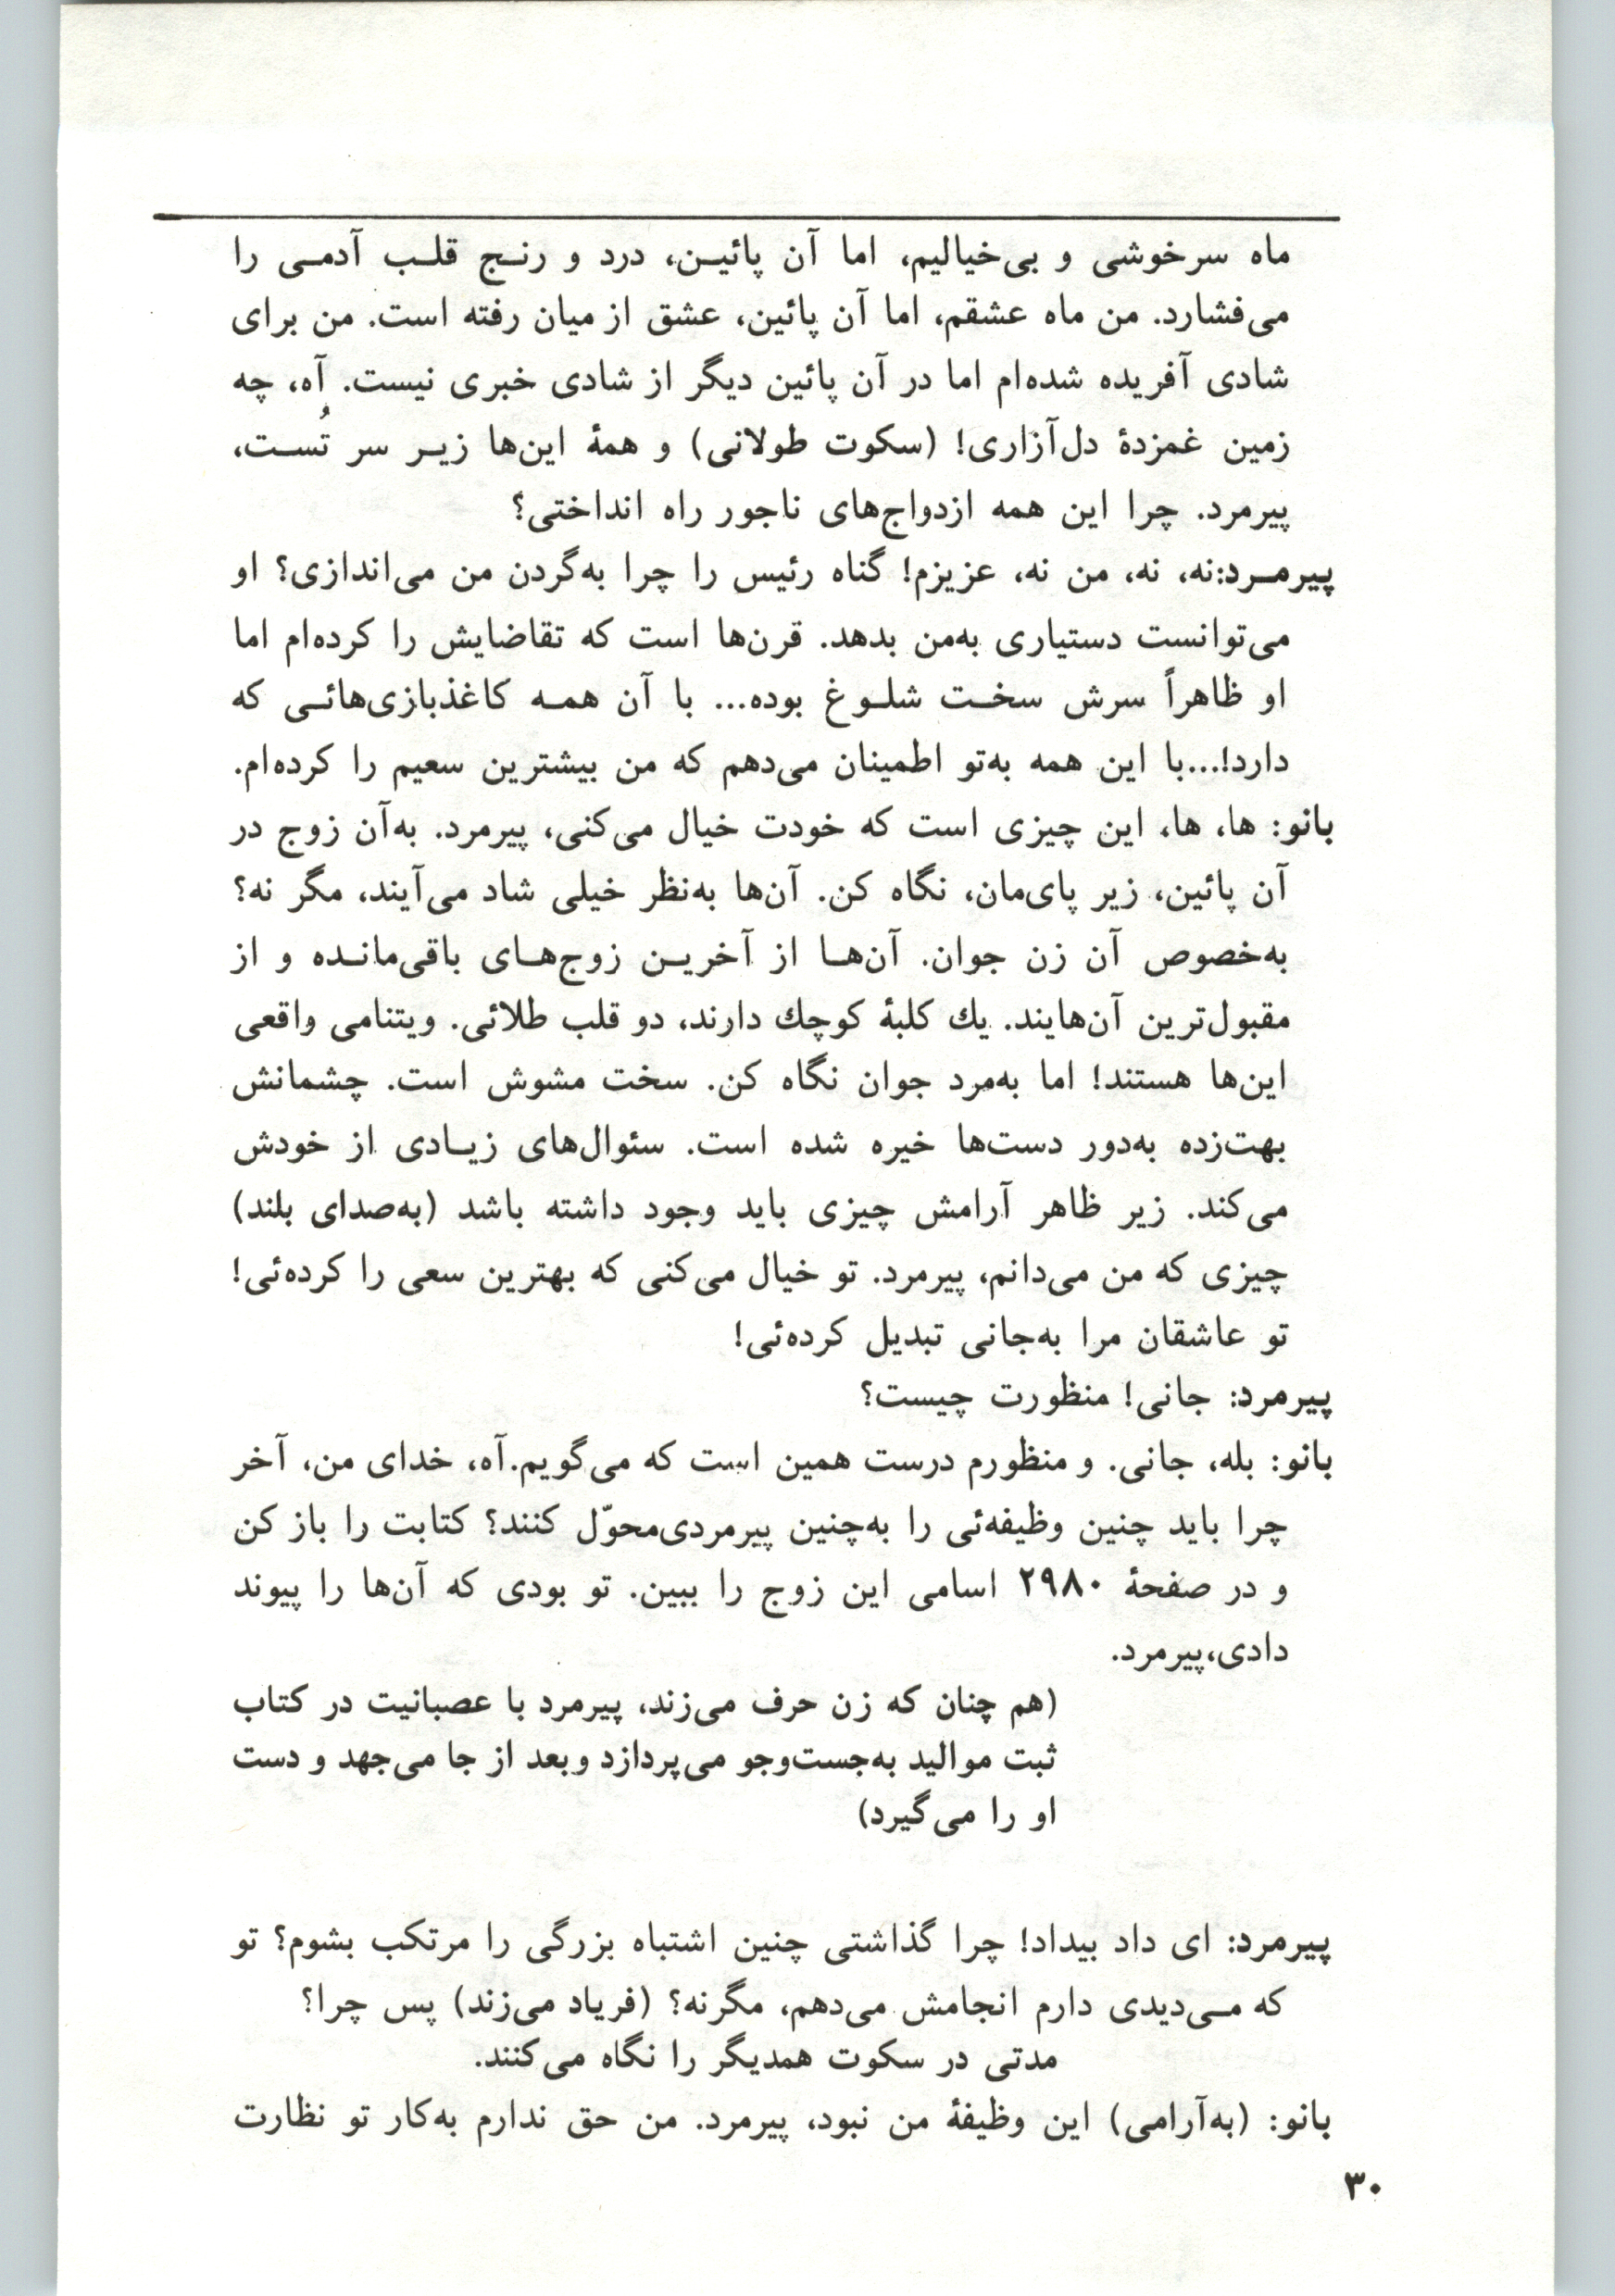 ماه سرخوشی و بی‌خیالیم، اما آن پائیـن، درد و رنـج قلـب آدمـی را
می‌فشارد. من ماه عشقم، اما آن پائین، عشق از میان رفته است. من برای
شادی آفریده شده‌ام اما در آن پائین دیگر از شادی خبری نیست. آه، چه
زمین غمزدهٔ دل‌آزاری! (سکوت طولانی) و همهٔ این‌ها زیـر سر تُسـت،
پیرمرد. چرا این همه ازدواج‌های ناجور راه انداختی؟
پیرمـرد:نه، نه، من نه، عزیزم! گناه رئیس را چرا به‌گردن من می‌اندازی؟ او
می‌توانست دستیاری به‌من بدهد. قرن‌ها است که تقاضایش را کرده‌ام اما
او ظاهراً سرش سخـت شلـوغ بوده... با آن همـه کاغذبازی‌هائـی که
دارد!...با این همه به‌تو اطمینان می‌دهم که من بیشترین سعیم را کرده‌ام.
بانو: ها، ها، این چیزی است که خودت خیال می‌کنی، پیرمرد. به‌آن زوج در
آن پائین، زیر پای‌مان، نگاه کن. آن‌ها به‌نظر خیلی شاد می‌آیند، مگر نه؟
به‌خصوص آن زن جوان. آن‌هـا از آخریـن زوج‌هـای باقی‌مانـده و از
مقبول‌ترین آن‌هایند. یك کلبهٔ کوچك دارند، دو قلب طلائی. ویتنامی واقعی
این‌ها هستند! اما به‌مرد جوان نگاه کن. سخت مشوش است. چشمانش
بهت‌زده به‌دور دست‌ها خیره شده است. سئوال‌های زیـادی از خودش
می‌کند. زیر ظاهر آرامش چیزی باید وجود داشته باشد (به‌صدای بلند)
چیزی که من می‌دانم، پیرمرد. تو خیال می‌کنی که بهترین سعی را کرده‌ئی!
تو عاشقان مرا به‌جانی تبدیل کرده‌ئی!
پیرمرد: جانی! منظورت چیست؟
بانو: بله، جانی. و منظورم درست همین است که می‌گویم.آه، خدای من، آخر
چرا باید چنین وظیفه‌ئی را به‌چنین پیرمردی‌محوّل کنند؟ کتابت را باز کن
و در صفحهٔ ۲۹۸۰ اسامی این زوج را ببین. تو بودی که آن‌ها را پیوند
دادی،پیرمرد.
(هم چنان که زن حرف می‌زند، پیرمرد با عصبانیت در کتاب
ثبت موالید به‌جست‌وجو می‌پردازد و بعد از جا می‌جهد و دست
او را می‌گیرد)
پیرمرد: ای داد بیداد! چرا گذاشتی چنین اشتباه بزرگی را مرتکب بشوم؟ تو
که مـی‌دیدی دارم انجامش می‌دهم، مگرنه؟ (فریاد می‌زند) پس چرا؟
مدتی در سکوت همدیگر را نگاه می‌کنند.
بانو: (به‌آرامی) این وظیفهٔ من نبود، پیرمرد. من حق ندارم به‌کار تو نظارت
۳۰